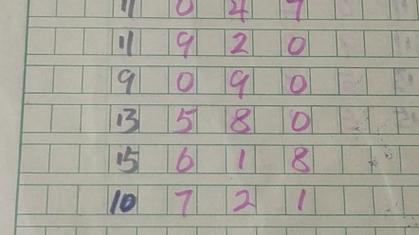 11 0 4 7
11 9 2 0
9 0 9 0
13 5 8 0
15 6 1 8
10 7 2 1